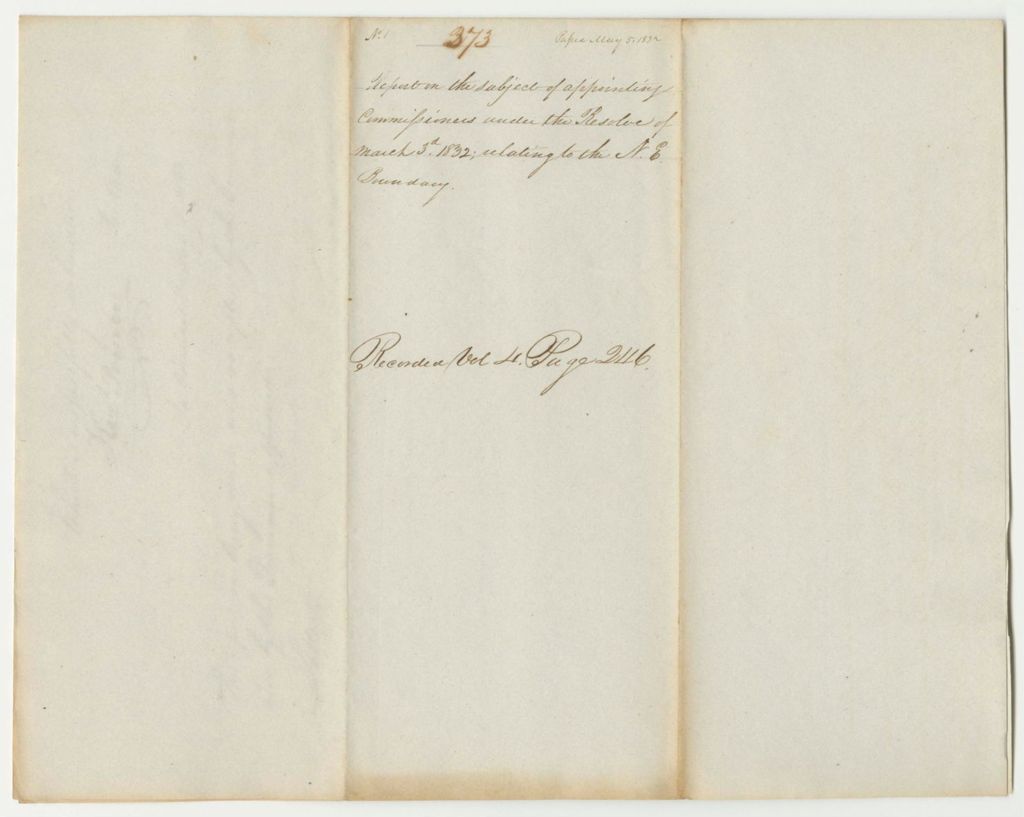 No 1 373 Papers May 5, 1832
Report on the subject of appointing
Commissioners under the Resolve of
March 3d. 1832; relating to the N. E.
Boundary.
Recorded Vol 4. Page 246.